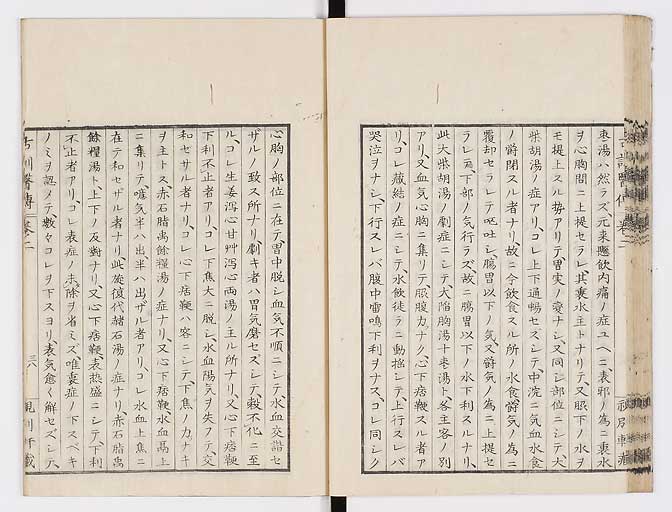 棗湯ハ然ラズ、元来懸飲内痛ノ症ユヘニ表邪ノ為ニ裏水
ヲ心胸間ニ上提セラレ其裏水主トナリテ、又脇下ノ水ヲ
モ提上スル勢アリテ胃実ノ変ナシ、又同シ部位ニシテ、大
柴胡湯ノ症アリ、コレ上下通暢セスシテ、中浣ニ気血水食
ノ欝閉スル者ナリ、故ニ今飲食スル所ノ水食欝気ノ為ニ
覆却セラレテ嘔吐シ、腸胃以下ノ気又欝気ノ為ニ上提セ
ラレテ下部ノ気行ラズ故ニ腸胃以下ノ水下利スルナリ、
此大柴胡湯ノ劇症ニシテ、大陥胸湯十棗湯ト、各主客ノ別
アリ、又血気心胸ニ集リテ、脹腹力ナク、心下痞鞕スル者ア
リ、コレ蔵結ノ症ニシテ、水飲徒ラニ動揺シテ、上行スレバ
哭泣ヲナシ、下行スレバ腹中雷鳴下利ヲナス、コレ同シク
心胸ノ部位ニ在テ、胃中脱シ血気不順ニシテ、水血交諧セ
ザルノ致ス所ナリ、劇キ者ハ胃気磨セズシテ、穀不化ニ至
ル、コレ生姜瀉心甘艸瀉心両湯ノ主ル所ナリ、又心下痞鞕
下利不止者アリ、コレ下焦大ニ脱シ、水血陽気ヲ失フテ、交
和セサル者ナリ、コレ心下痞鞕ハ客ニシテ、下焦ノ力ナキ
ヲ主トス、赤石脂禹餘糧湯ノ症ナリ、又心下痞鞕水血鬲上
ニ集リテ噫気半ハ出半ハ出ザル者アリ、コレ水血上焦ニ
在テ和セザル者ナリ、此旋復代赭石湯ノ症ナリ、赤石脂禹
餘糧湯ト、上下ノ反對ナリ、又心下痞鞕、表熱盛ニシテ、下利
不止者アリ、コレ表症ノ未除ヲ省ミズ唯裏症ノ下スベキ
ノミヲ認メテ、數々コレヲ下スヨリ、表気愈ヽ解セズシテ、
古訓醫傳 巻二
三八